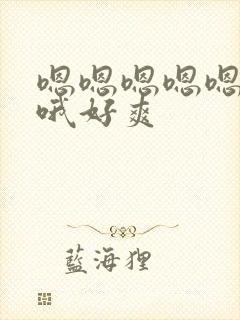 嗯嗯嗯嗯嗯
哦好爽
藍海狸